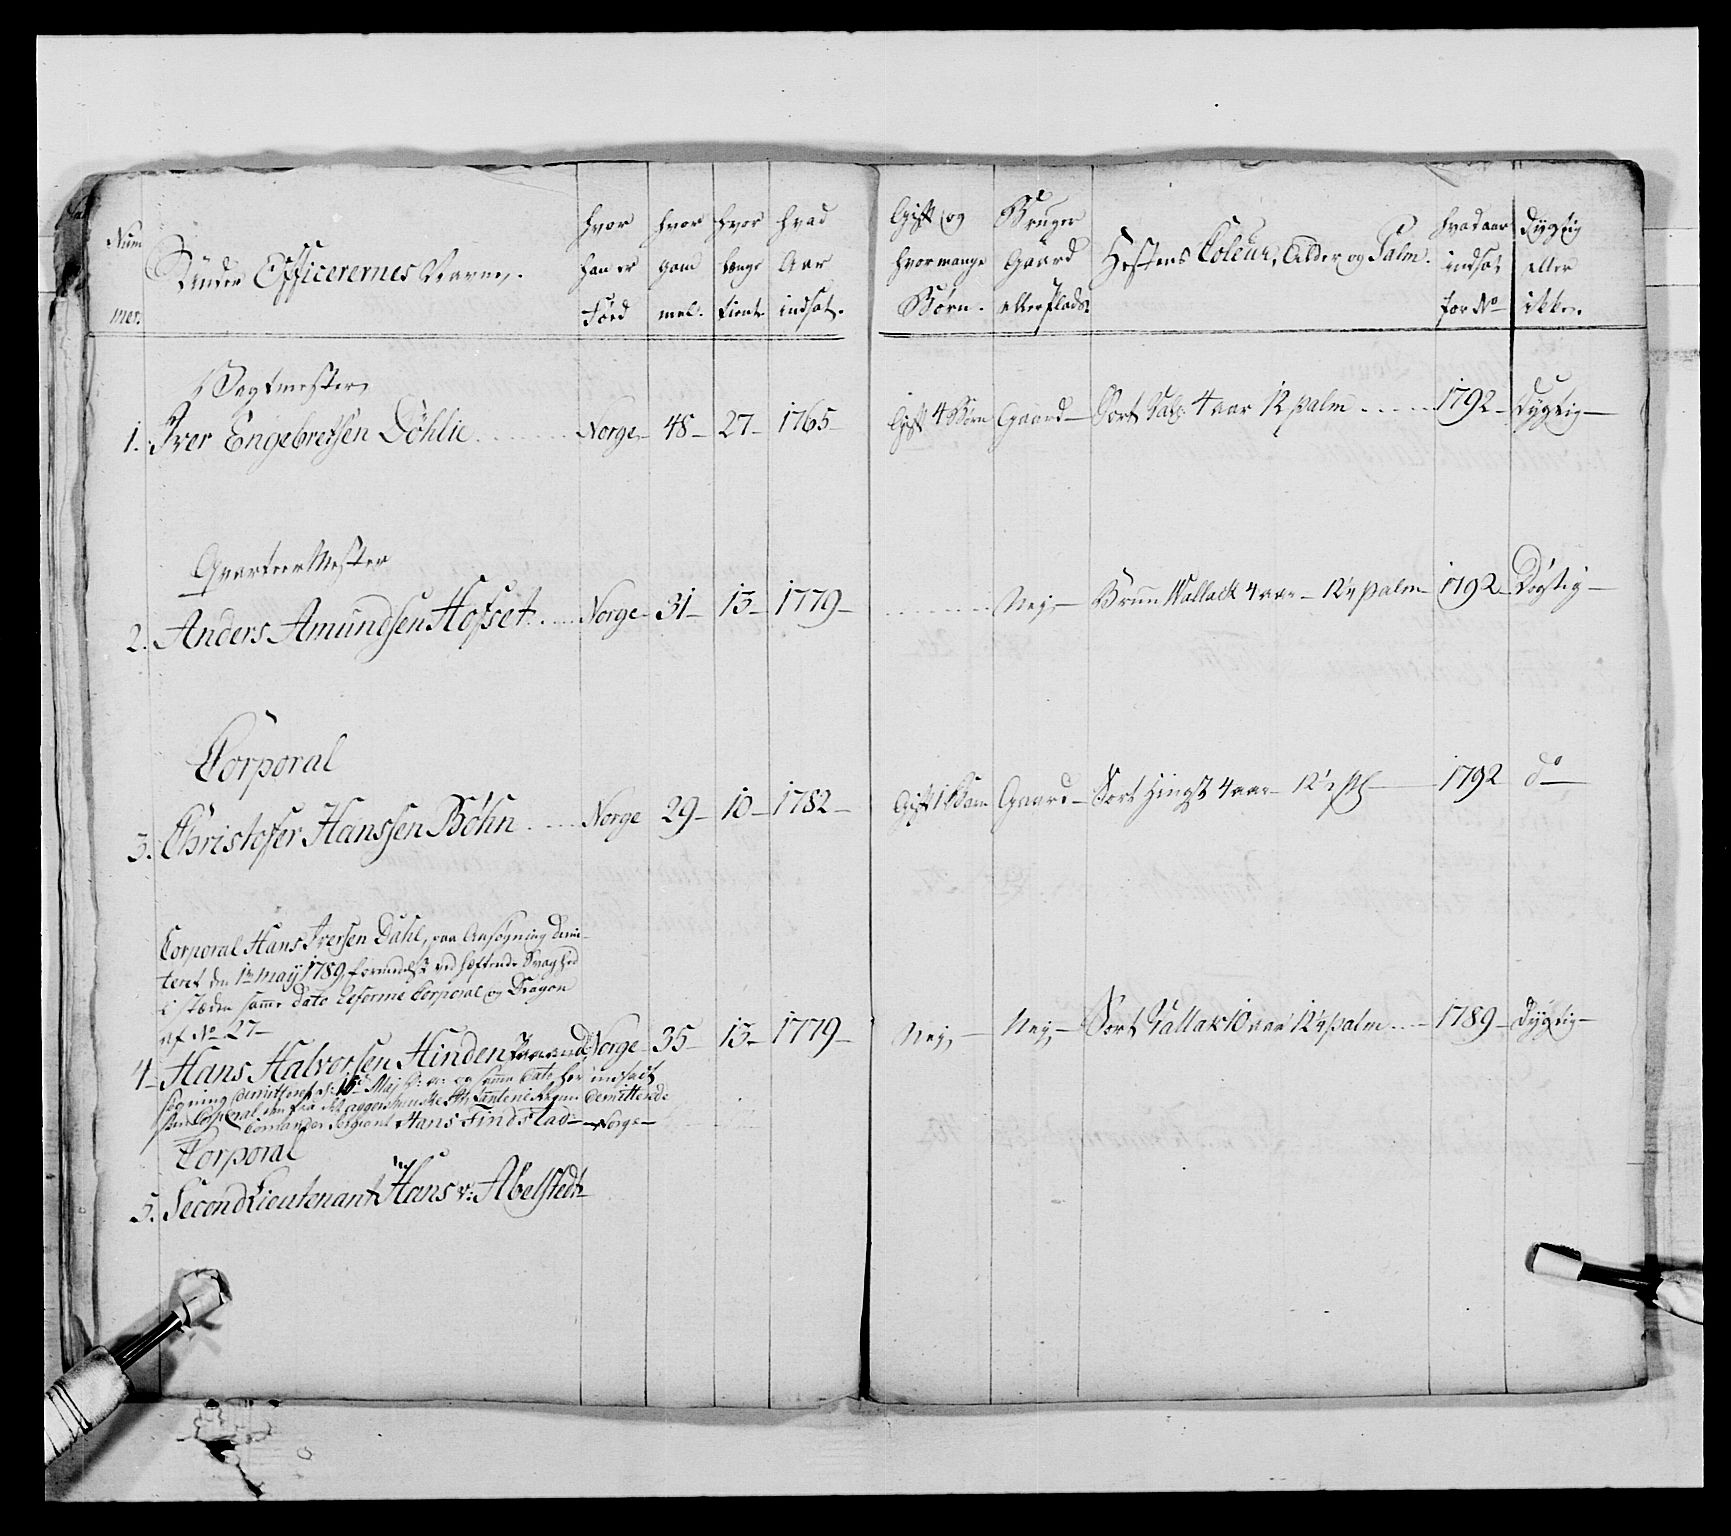 Num
mer.
Under Officerernes Navne.
hvor
han er
Föed
hvor
gam
mel.
hvor
længe
tient
hvad
Aar
indsat.
Gift og
hvormange
Børn.
Bruger
Gaard
eller Plads.
Hestens Coleur, Alder og Palm.
hvad aar
indsat
for No
dygtig
eller
ikke.
Vagtmester
1. Iver Engebretsen Döhlie Norge 48 27 1765 Gift 4 Børn Gaard Sort 4 aar 12 palm 1792 Dygtig
Qvarteer Mester
2. Anders Amundsen Hofset Norge 31 13 1779 Nej Brun Wallack 4 aar 12½ palm 1792 Dögtig
Corporal
3. Christofer Hanssen Böhn Norge 29 10 1782 Gift 1 Barn Gaard Sort Hingst 4 aar 12½ pl 1792 do
Corporal Hans Iversen Dahl, paa Ansögning dimi-
teret den 1te may 1789, formedelst ved hæftende Svaghed
i stæden samme Dato Reforme Corporal og Dragon
af No 27
4 Hans Halvorsen Hinden Norge 35 13 1779 Nej Nej Sort Vallak 10 aar 12½ palm 1789 dygtig
søgning demitteret Maj og samme Dato her indsadt
Corporal fra det aggershuuske Regim
Sergient Hans Findstad Norge
Corporal
5. Second Lieutenant Hans v: Abelstedt